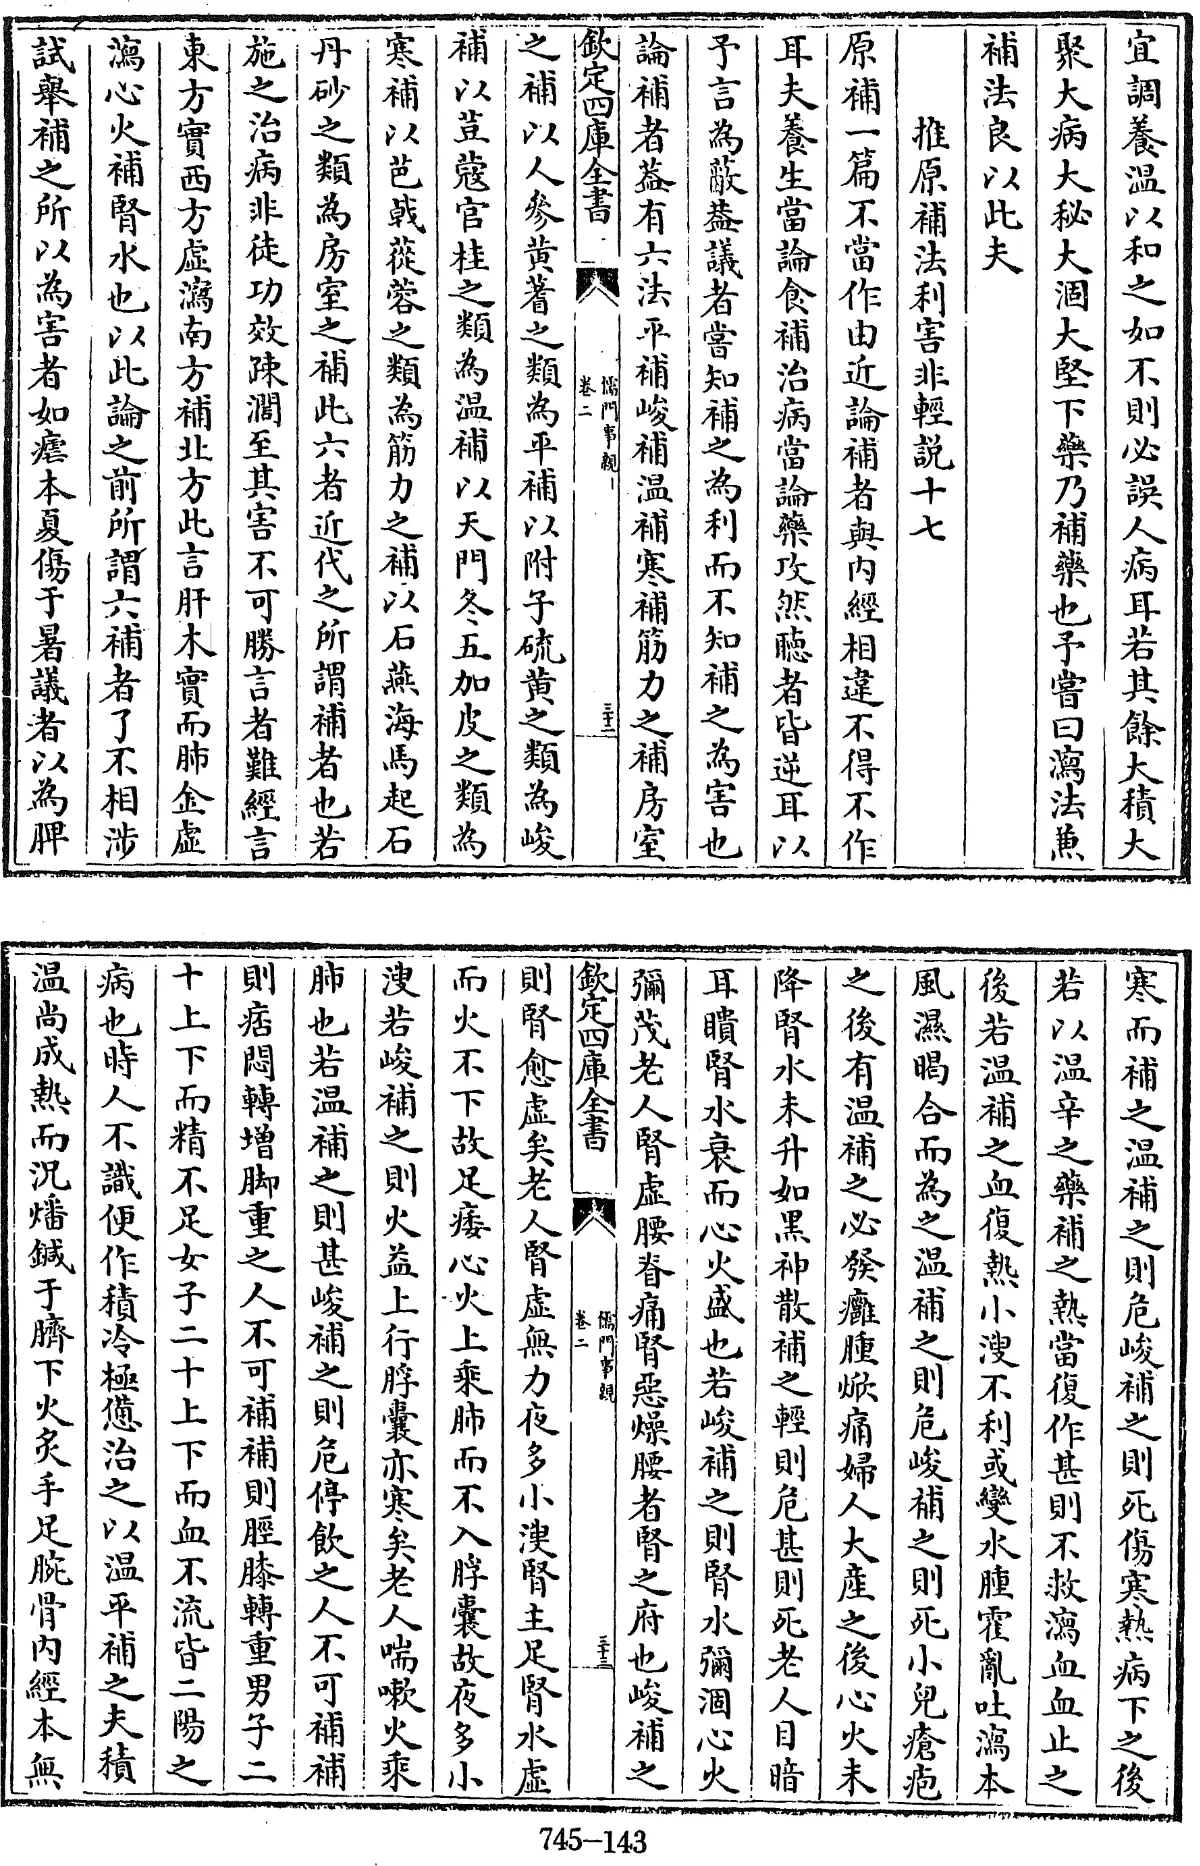 宜調養温以和之如不則必誤人病耳若其餘大積大
聚大病大秘大涸大堅下藥乃補藥也予嘗曰瀉法兼
補法良以此夫
推原補法利害非輕説十七
原補一篇不當作由近論補者與内經相違不得不作
耳夫養生當論食補治病當論藥攻然聽者皆逆耳以
予言為敵葢議者嘗知補之為利而不知補之為害也
論補者葢有六法平補峻補温補寒補筋力之補房室
欽定四庫全書
儒門事親
卷二
三十二
之補以人參黄蓍之類為平補以附子硫黄之類為峻
補以荳蔲官桂之類為温補以天門冬五加皮之類為
寒補以芭戟蓯蓉之類為筋力之補以石燕海馬起石
丹砂之類為房室之補此六者近代之所謂補者也若
施之治病非徒功效疎濶至其害不可勝言者難經言
東方實西方虚瀉南方補北方此言肝木實而肺金虚
瀉心火補腎水也以此論之前所謂六補者了不相涉
試舉補之所以為害者如瘧本夏傷于暑議者以為脾
寒而補之温補之則危峻補之則死傷寒熱病下之後
若以温辛之藥補之熱當復作甚則不救瀉血血止之
後若温補之血復熱小溲不利或變水腫霍亂吐瀉本
風濕暍合而為之温補之則危峻補之則死小兒瘡疱
之後有温補之必發癰腫焮痛婦人大産之後心火未
降腎水未升如黒神散補之輕則危甚則死老人目暗
耳聵腎水衰而心火盛也若峻補之則腎水彌涸心火
彌茂老人腎虚腰脊痛腎惡燥腰者腎之府也峻補之
欽定四庫全書
儒門事親
卷二
三十三
則腎愈虚矣老人腎虚無力夜多小溲腎主足腎水虚
而火不下故足痿心火上乘肺而不入脬囊故夜多小
溲若峻補之則火益上行脬囊亦寒矣老人喘嗽火乘
肺也若温補之則甚峻補之則危停飲之人不可補補
則痞悶轉増脚重之人不可補補則脛膝轉重男子二
十上下而精不足女子二十上下而血不流皆二陽之
病也時人不識便作積冷極憊治之以温平補之夫積
温尚成熱而况燔鍼于臍下火灸手足腕骨内經本無
745-143